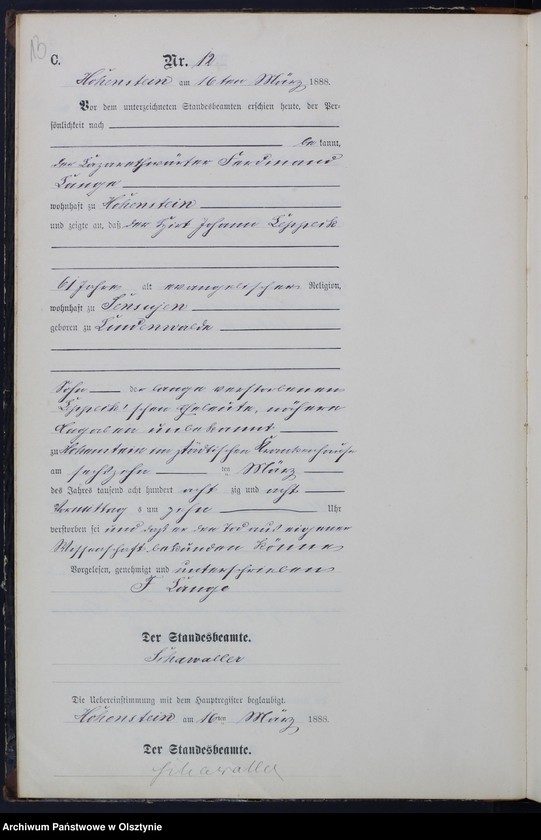 C.
Nr. 12
Hohenstein am 16ten März 1888.
Vor dem unterzeichneten Standesbeamten erschien heute, der Per-
sönlichkeit nach
be kannt,
der Lazarethwärter Ferdinand
Lange
wohnhaft zu Hohenstein
und zeigte an, daß der Hirt Johann Czppeik
61 Jahre alt evangelischer Religion,
wohnhaft zu
geboren zu Lindenwalde
Sohn der lange verstorbenen
'schen Eheleute, nähere
Angaben unbekannt
zu Hohenstein im städtischen Krankenhause
am sechszehn ten März
des Jahrs tausend acht hundert acht zig und acht
Vormittag s um zehn Uhr
verstorben sei und daß er den Tod aus eigener
Wissenschaft bekunden könne
Vorgelesen, genehmigt und unterschrieben
F Lange
Der Standesbeamte.
Schawaller
Die Uebereinstimmung mit dem Hauptregister beglaubigt.
Hohenstein am 16ten März 1888.
Der Standesbeamte.
Schawaller
Archiwum Państwowe w Olsztynie